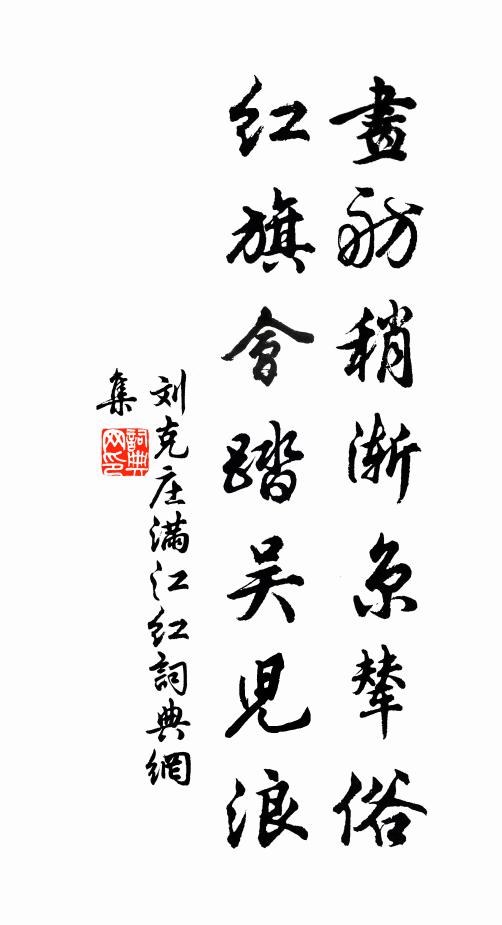 畫舫稍漸京輦俗
紅旗會踏吴兒浪
刘克庄满江红詞典網
集
詞典网印